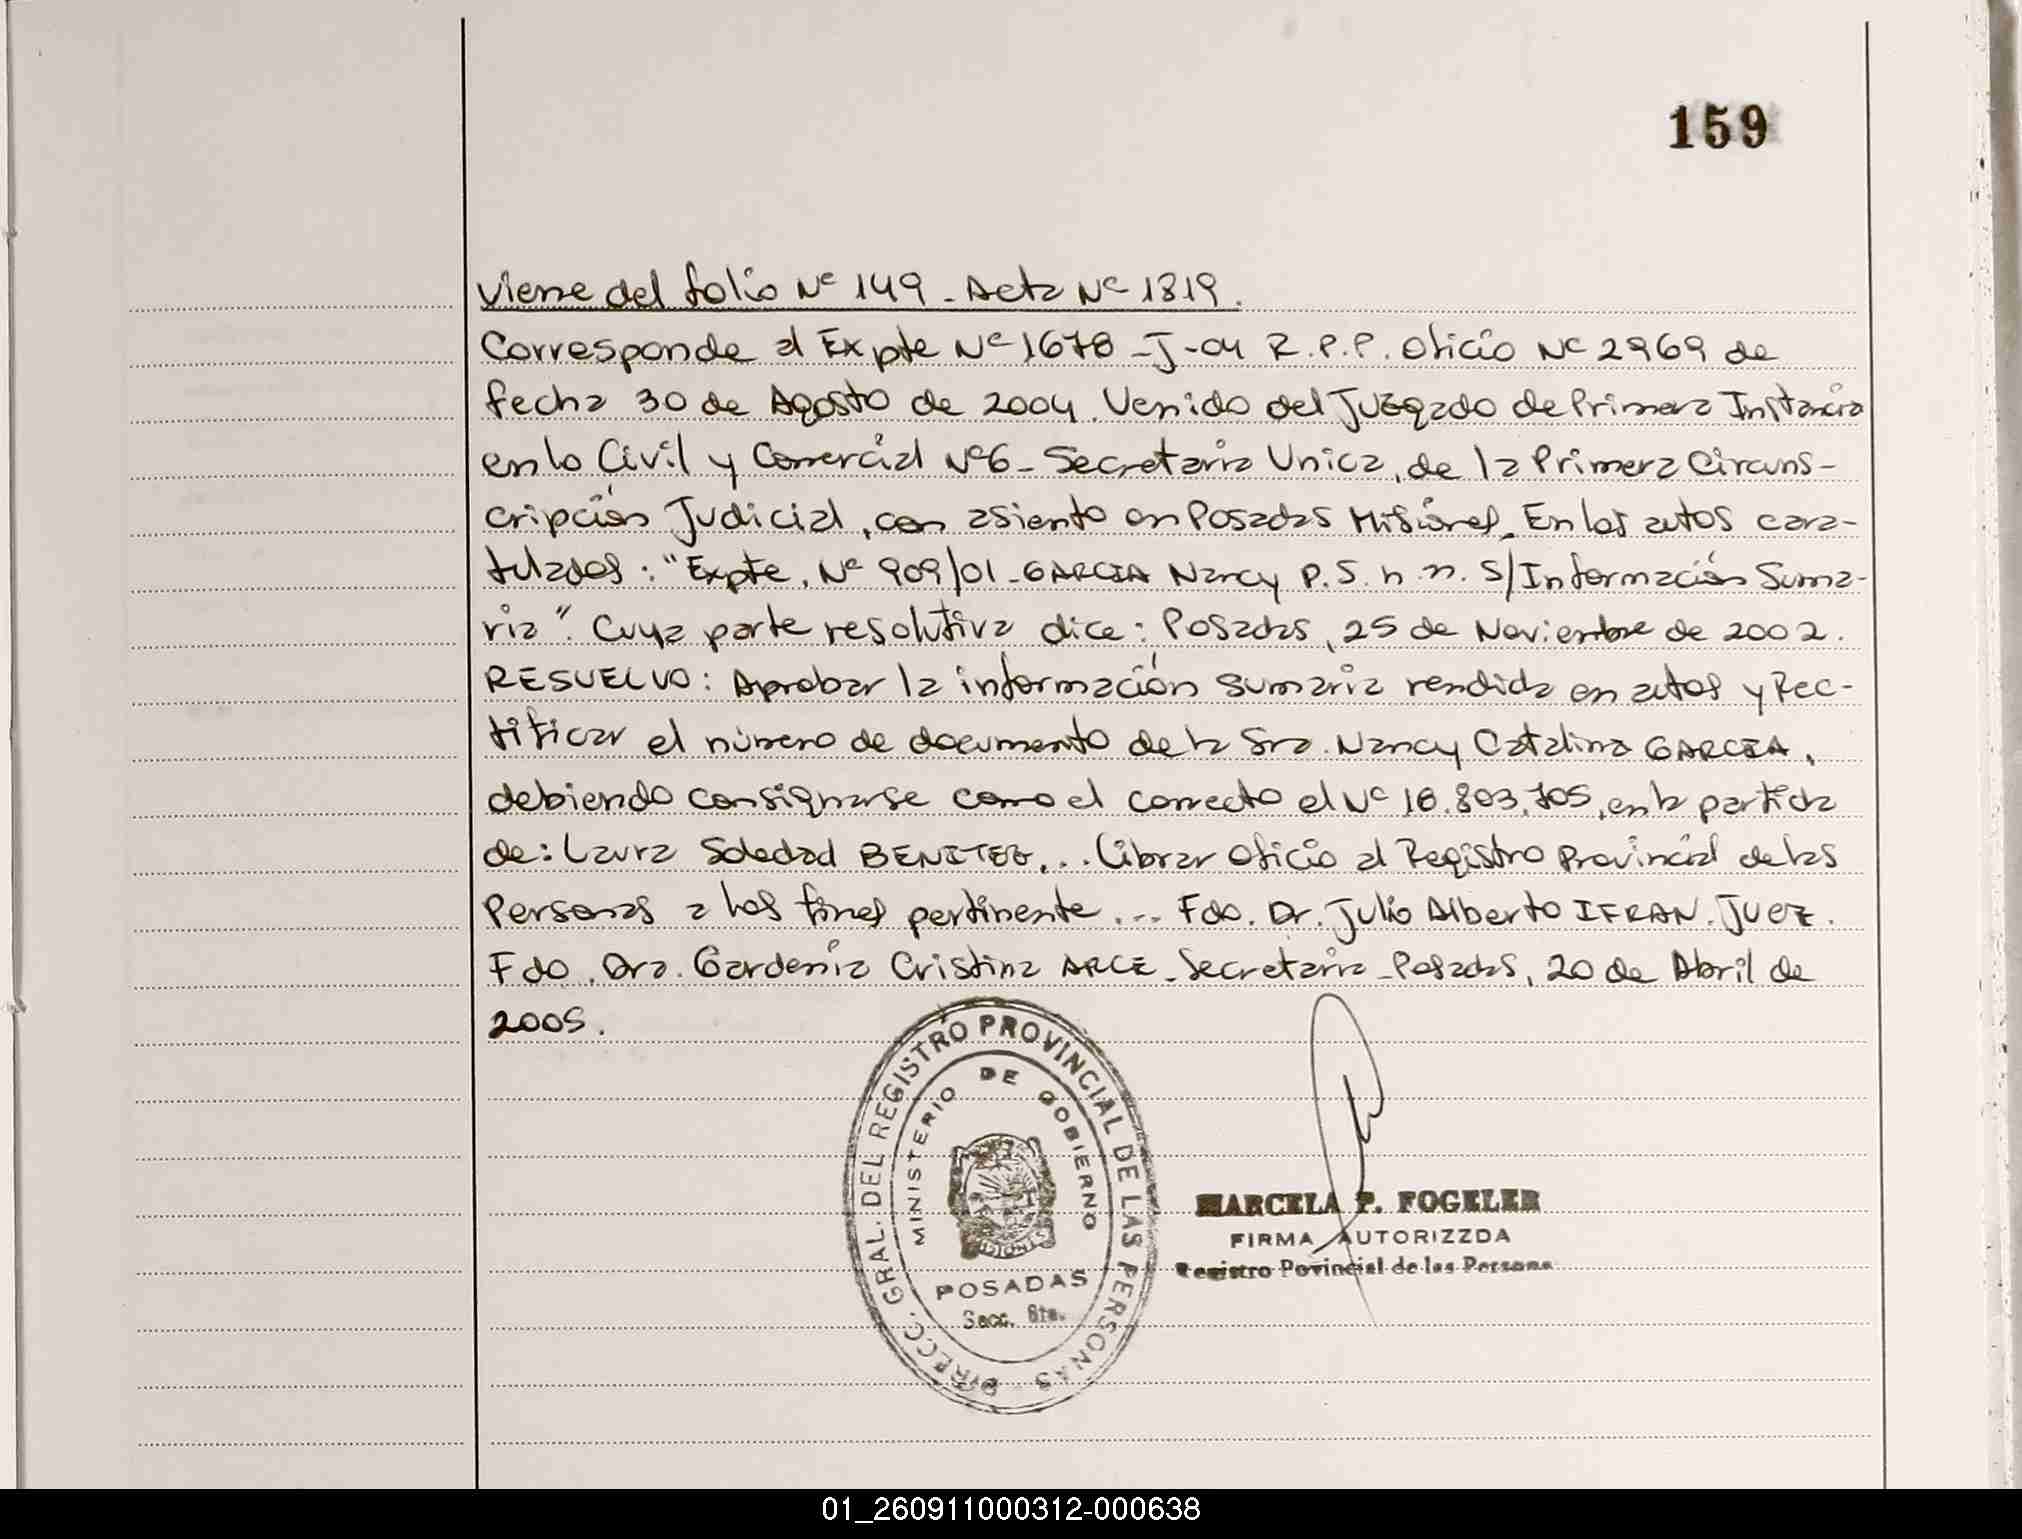 159
Viene del folio Nº 149 - Acta Nº 1819.
Corresponde al Expte Nº 1678 - J - 04 R.P.P. Oficio Nº 2969 de
fecha 30 de Agosto de 2004. Venido del Juzgado de Primera Instancia
en lo Civil y Comercial Nº 6 - Secretaria Unica, de la Primera Circuns-
cripción Judicial, con asiento en Posadas Misiones. En los autos cara-
tulados: "Expte. Nº 909/01 - GARCIA Nancy P. S. h. m. S/ Información Suma-
ria". Cuya parte resolutiva dice: Posadas, 25 de Noviembre de 2002.
RESUELVO: Aprobar la información sumaria rendida en autos y Rec-
tificar el número de documento de la Sra. Nancy Catalina GARCIA,
debiendo consignarse como el correcto el Nº 18.803.705, en la partida
de: Laura Soledad BENITEZ... Librar Oficio al Registro Provincial de las
Personas a los fines pertinente... Fdo. Dr. Julio Alberto IFRAN. JUEZ.
Fdo. Dra. Gardenia Cristina ARCE - Secretaria - Posadas, 20 de Abril de
2005.
DIRECC. GRAL. DEL REGISTRO PROVINCIAL DE LAS PERSONAS
MINISTERIO DE GOBIERNO
MISIONES
POSADAS
Secc. 6ta.
MARCELA P. FOGELER
FIRMA AUTORIZZDA
Registro Povincial de las Persona
01_260911000312-000638